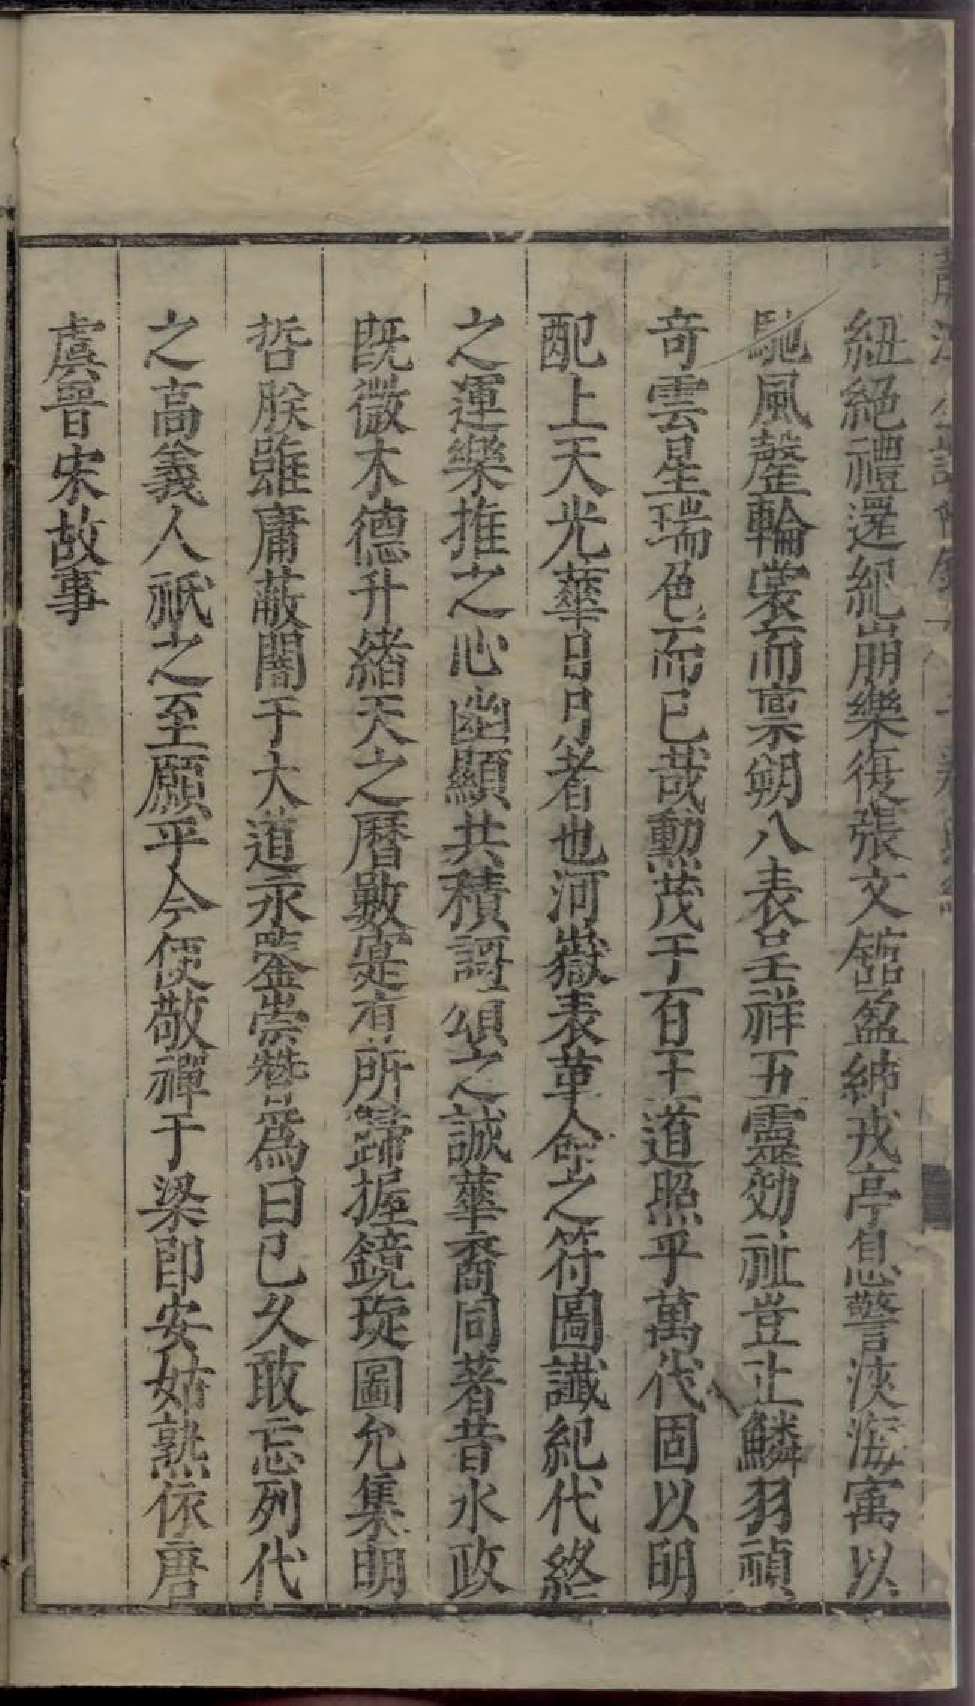 紐絕禮還紀崩樂復張文舘盈紳戎亭息警浹海寓以
馳風罄輪裳而禀朔八表呈祥五靈効祉豈止鱗羽禎
奇雲星瑞色而已哉勲茂于百王道照乎萬代固以明
配上天光華日月者也河嶽表革命之符圖讖紀代終
之運樂推之心幽顯共積謌頌之誠華裔同著昔水政
既微木德升緒天之曆數寔有所歸握鏡琁圖允集明
哲朕雖庸蔽闇于大道永鑒崇替為日已久敢忘列代
之高義人祇之至願乎今便敬禪于梁即安姑熟依唐
虞晋宋故事